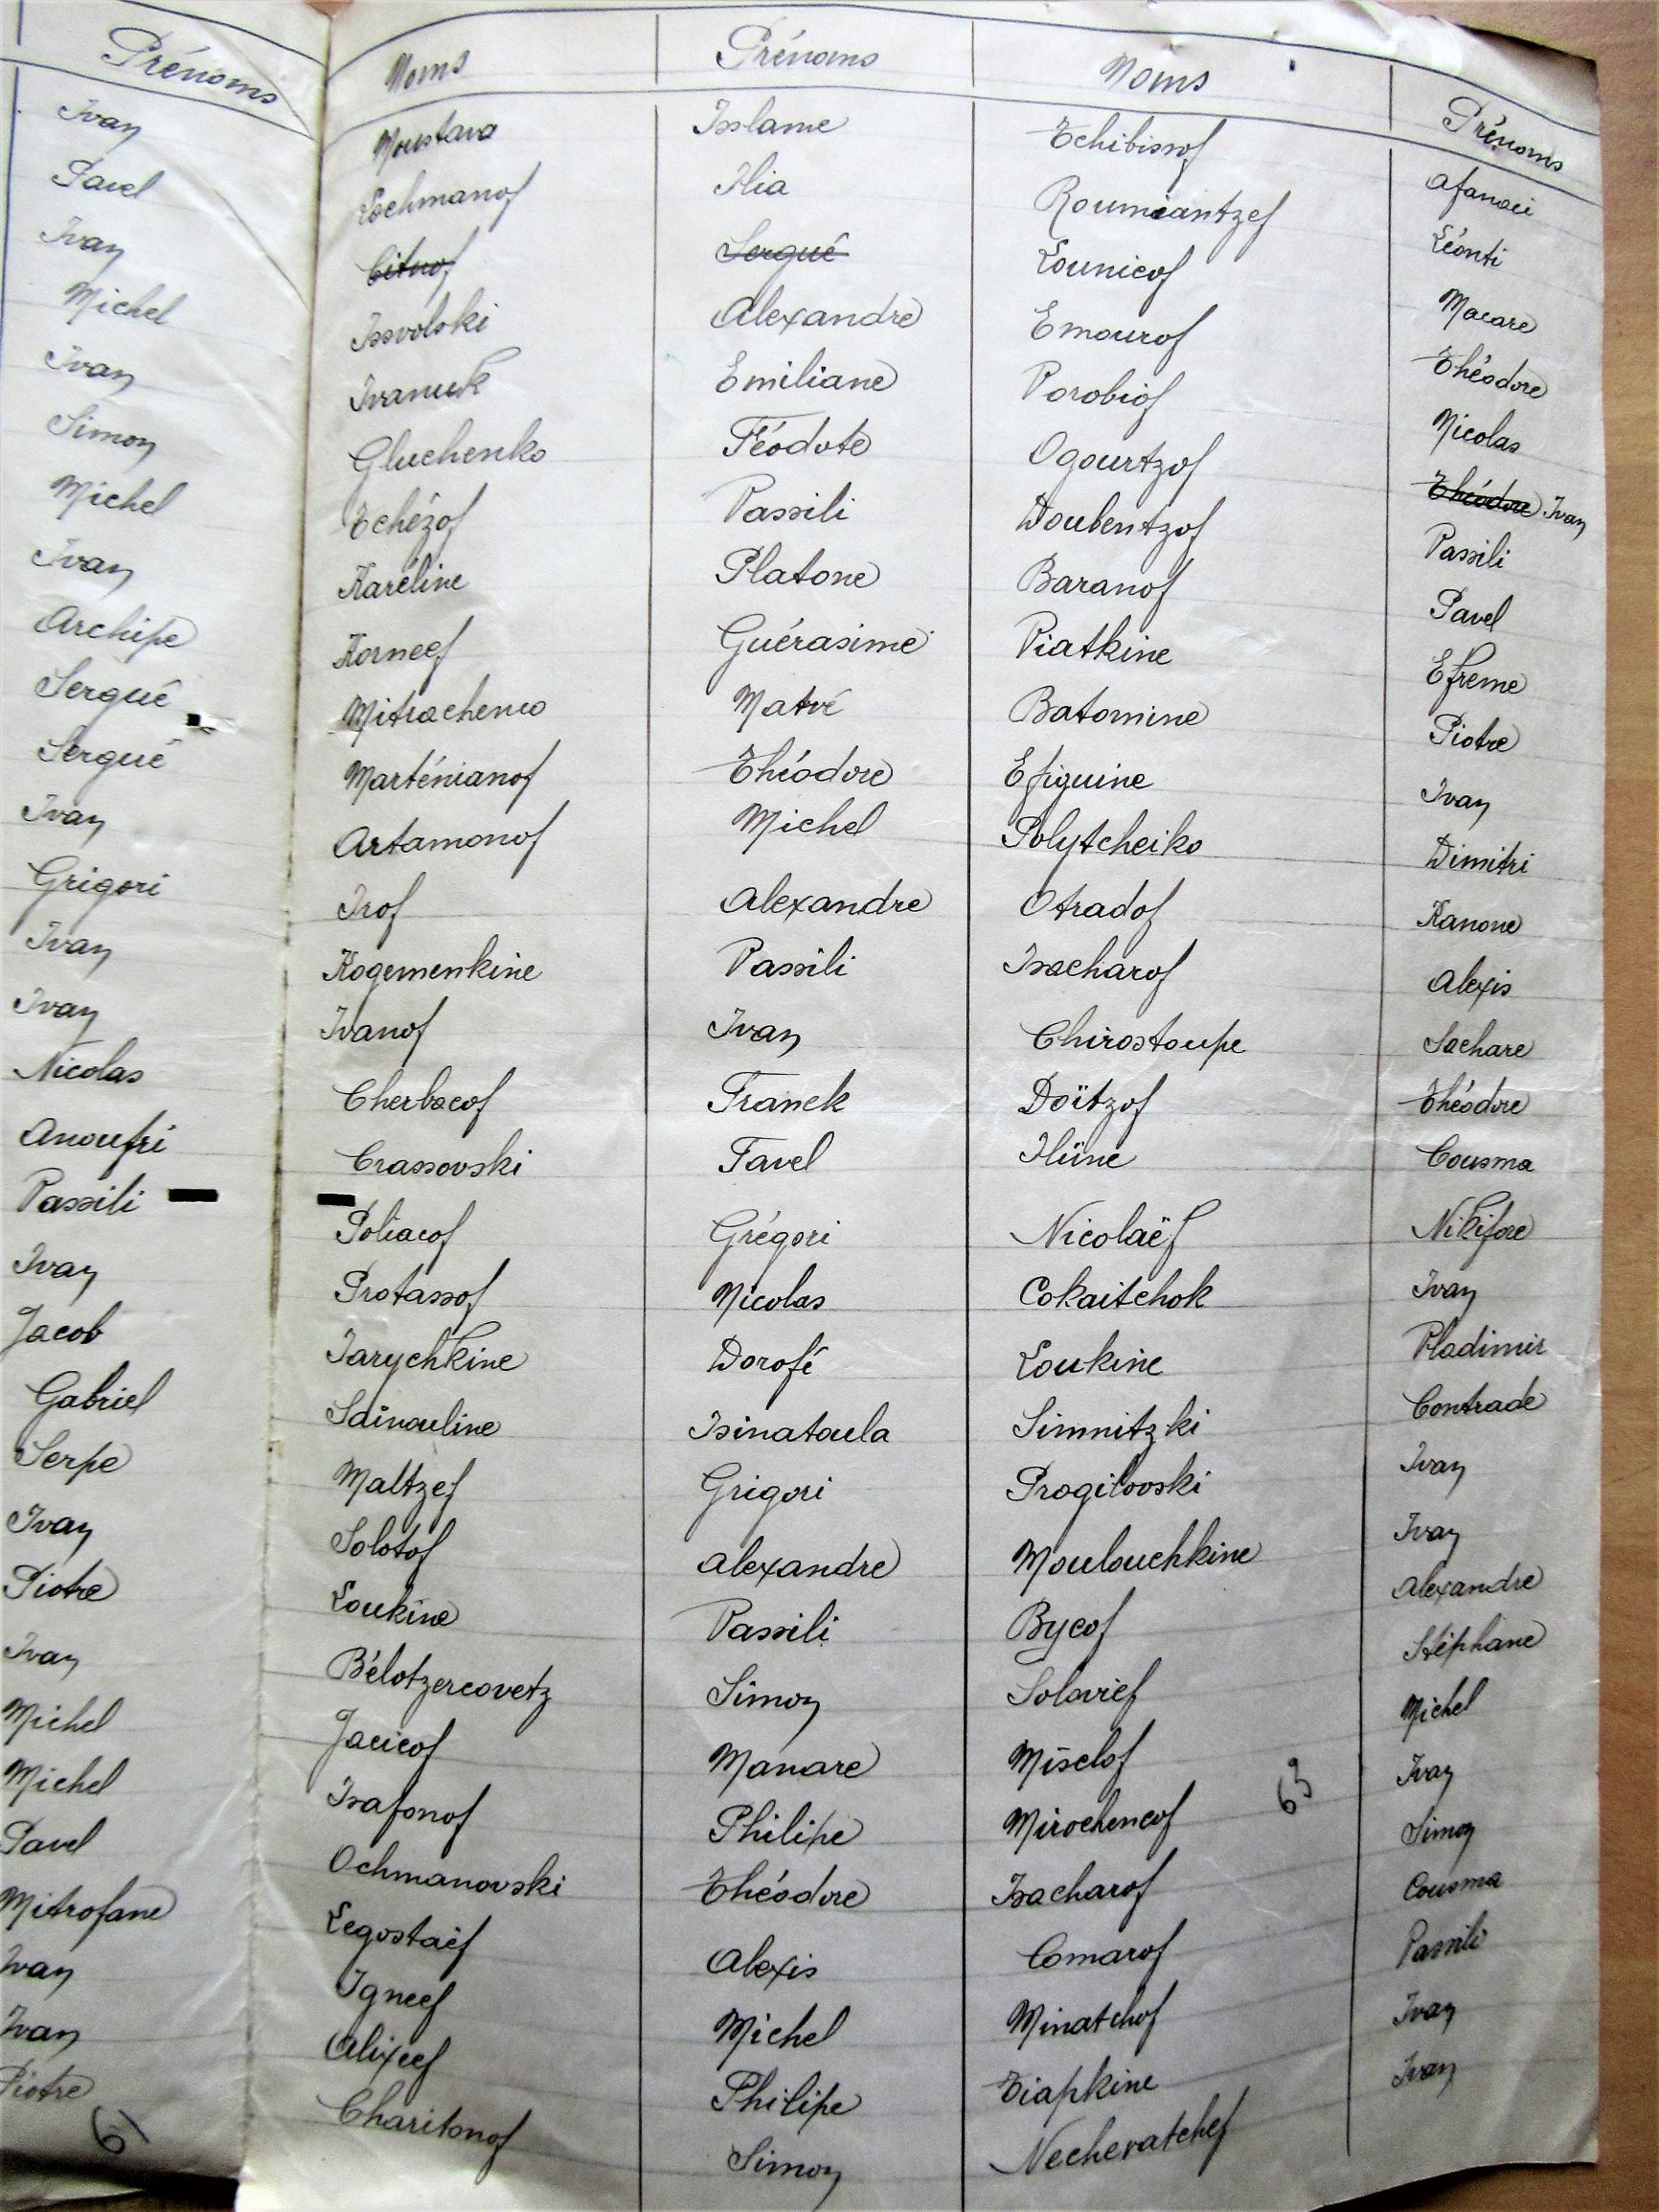 Prénoms
Ivan
Pavel
Ivan
Michel
Ivan
Simon
Michel
Ivan
Archipe
Sergué
Sergué
Ivan
Grigori
Ivan
Ivan
Nicolas
Anoufri
Vassili
Ivan
Jacob
Gabriel
Serpe
Ivan
Piotre
Ivan
Michel
Michel
Pavel
Mitrofane
Ivan
Ivan
Piotre
61
Noms Prénoms
Moustava Isslame
Lochmanof Ilia
Sergué
Issvolski Alexandre
Ivanuk Emiliane
Gluchenko Féodote
Tchézof Vassili
Karéline Platone
Korneef Guérasime
Mitrachenco Matvé
Marténianof Théodore
Artamonof Michel
Irof Alexandre
Kogemenkine Vassili
Ivanof Ivan
Cherbacof Franck
Crassovski Favel
Poliacof Grégori
Protassof Nicolas
Tarychkine Dorofé
Saïnouline Isinatoula
Maltzef Grigori
Solotof Alexandre
Loukine Vassili
Bélotzercovetz Simon
Jacicof Manare
Isafonof Philipe
Ochmanovski Théodore
Legostaëf Alexis
Igneef Michel
Alixeef Philipe
Charitonof Simon
Noms Prénoms
Tchibissof Afanaci
Roumiantzef Léonti
Lounicof Macare
Emourof Théodore
Vorobiof Nicolas
Ogourtzof Théodore Ivan
Doubentzof Vassili
Baranof Pavel
Piatkine Efreme
Batomine Piotre
Efiguine Ivan
Polytcheiko Dimitri
Otradof Kanone
Isacharof Alexis
Chirostoupe Sachare
Doïtzof Théodore
Iliine Cousma
Nicolaëf Nikifore
Cokaitchok Ivan
Loukine Vladimir
Simnitzki Contrade
Progilovski Ivan
Moulouchkine Ivan
Bycof Alexandre
Solovief Stéphane
Misclof Michel
Mirochencof Ivan
63
Isacharof Simon
Comarof Cousma
Minatchof Vassili
Tiapkine Ivan
Necheratchef Ivan